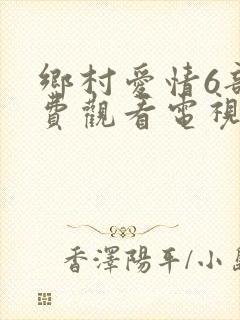 鄉村愛情6部
費觀看電視
香澤陽平/小島